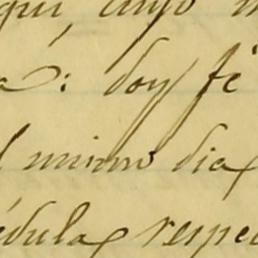 qui, cuyo
a: doy fé
l mismo dia
édula respec